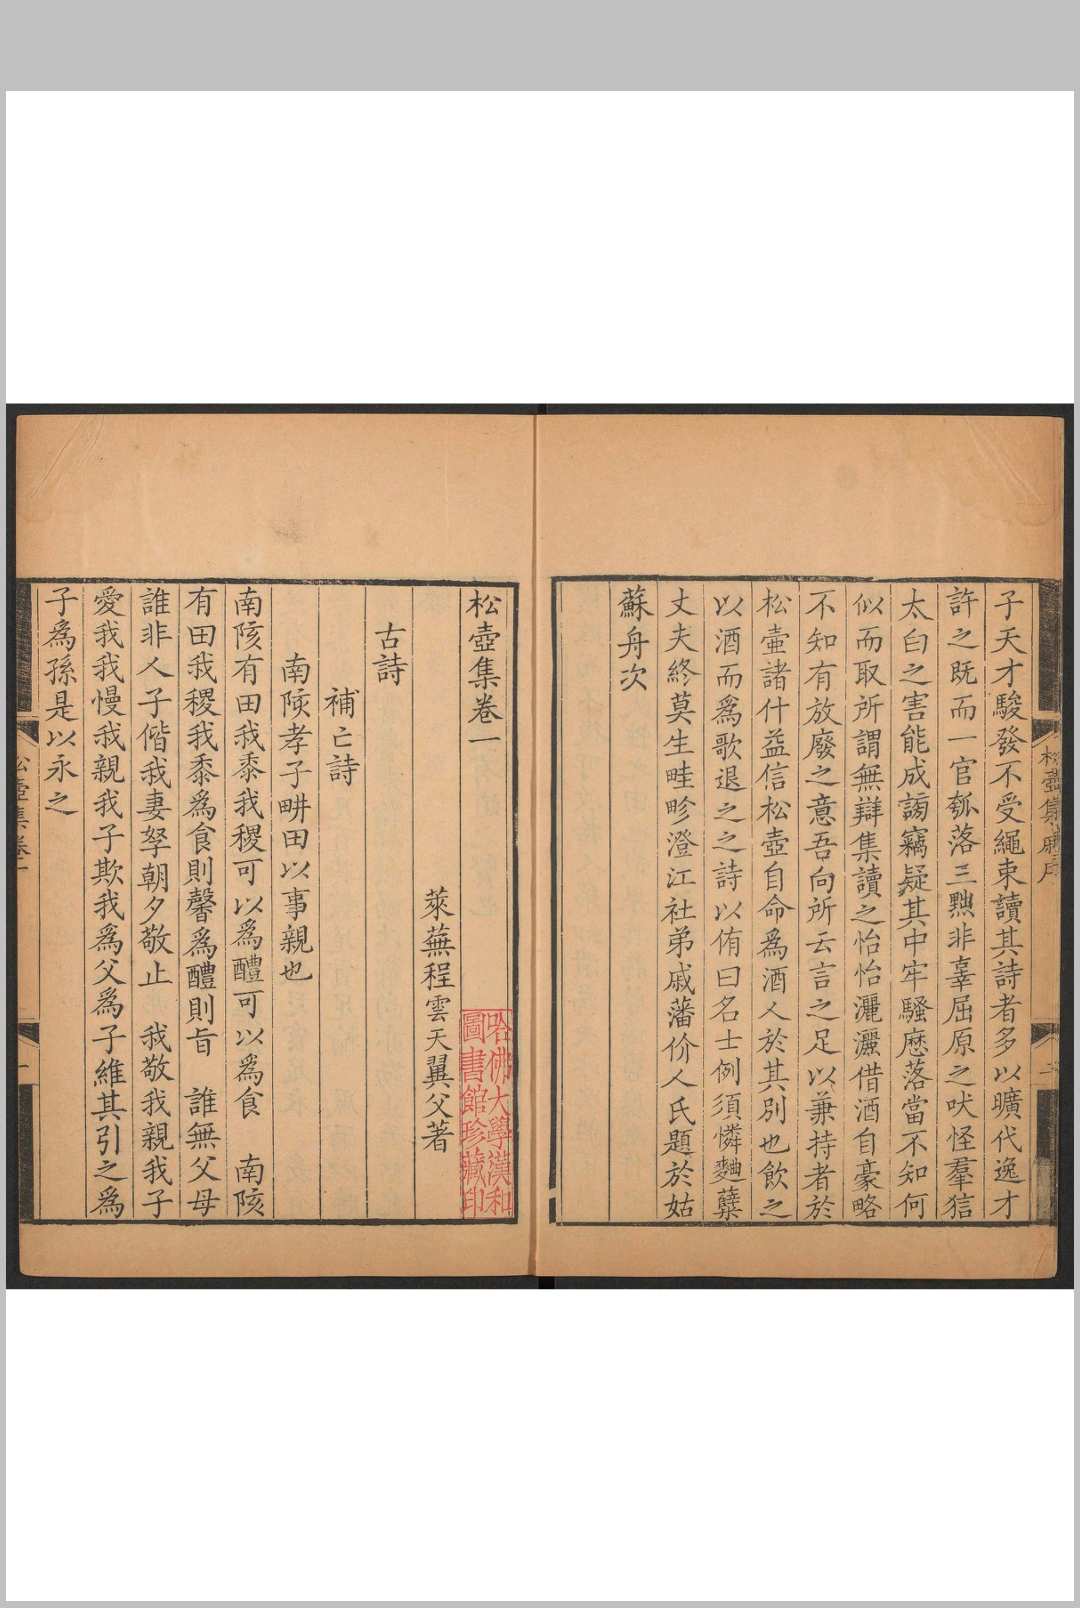 子天才駿發不受繩束讀其詩者多以曠代逸才
許之既而一官瓠落三黜非辜屈原之吠怪羣狺
太白之害能成謗竊疑其中牢騷懕落當不知何
似而取所謂無辯集讀之怡怡灑灑借酒自豪略
不知有放廢之意吾向所云言之足以兼持者於
松壷諸什益信松壺自命爲酒人於其別也飲之
以酒而爲歌退之之詩以侑曰名士例須憐麯櫱
丈夫終莫生畦畛澄江社弟戚藩价人氏題於姑
蘇舟次
松壺集卷一
萊蕪程雲天翼父著
古詩
補亡詩
南陔孝子畊田以事親也
南陔有田我黍我稷可以爲醴可以爲食 南陔
有田我稷我黍爲食則馨爲醴則旨 誰無父母
誰非人子偕我妻孥朝夕敬止 我敬我親我子
愛我我慢我親我子欺我爲父爲子維其引之爲
子爲孫是以永之
哈佛大學漢和
圖書館珍藏印
松壺集卷一
一